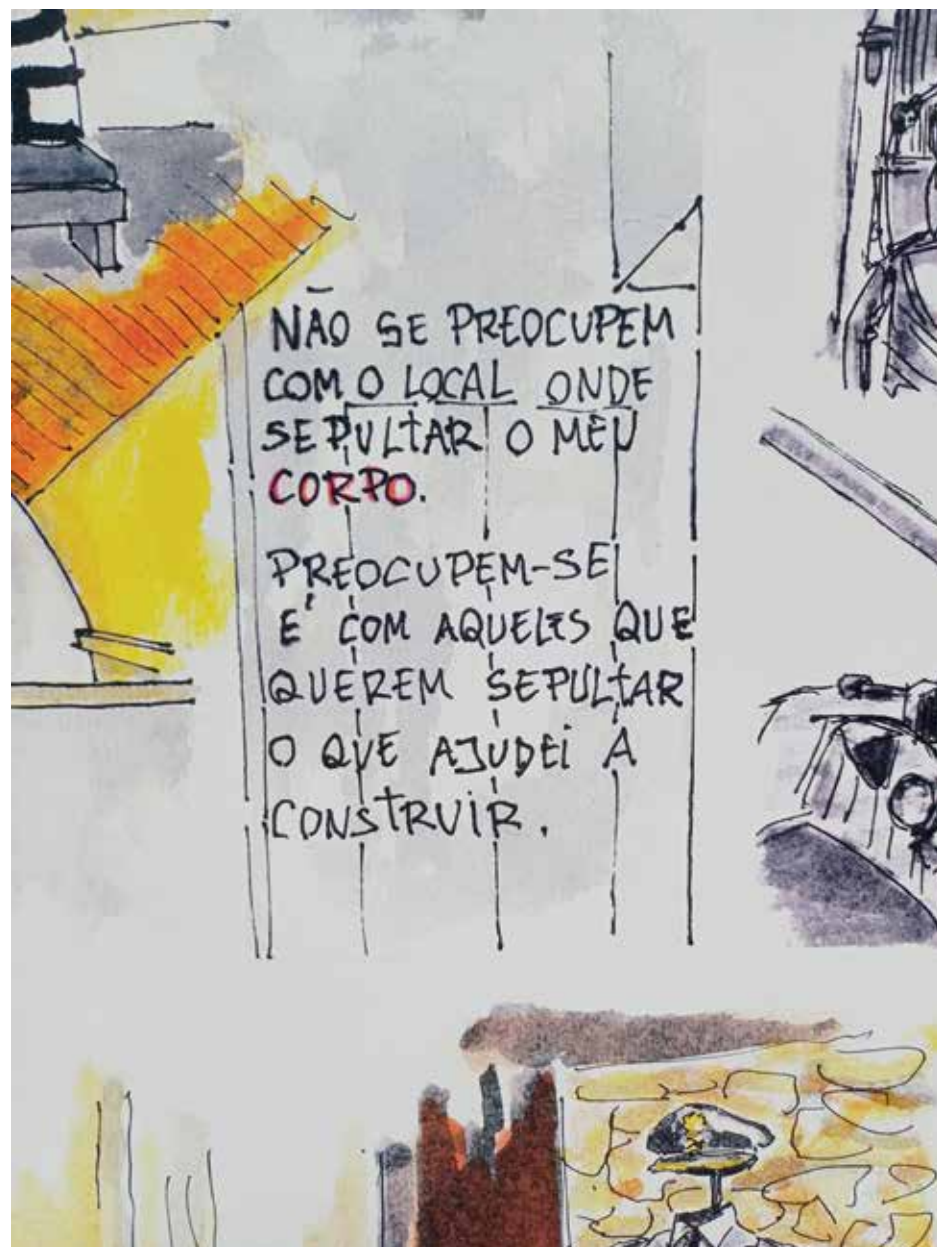 NÃO SE PREOCUPEM
COM O LOCAL ONDE
SEPULTAR O MEU
CORPO.
PREOCUPEM-SE
É COM AQUELES QUE
QUEREM SEPULTAR
O QUE AJUDEI A
CONSTRUIR.